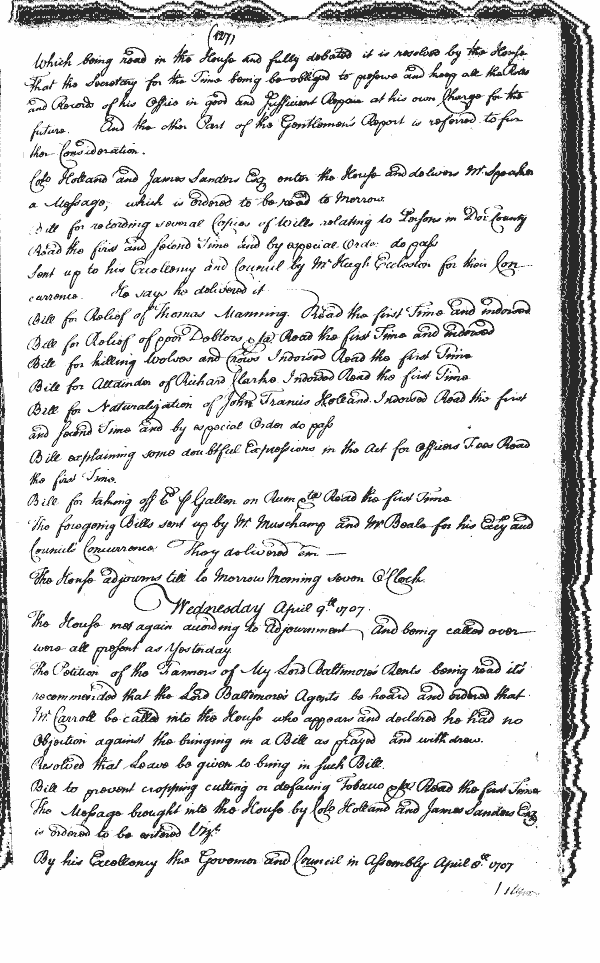 (127)
Which being read in the House and fully debated it is resolved by the House
That the Secretary for the Time being be obliged to preserve and keep all the
and Records of his Office in good and sufficient Repair at his own Charge for the
future. And the other Part of the Gentlemen's Report is referred to fur
ther Consideration.
Colo Holland and James Sanders Esq enter the House and delivers Mr Speaker
a Message, which is ordered to be read to Morrow
Bill for recording several Copies of Wills relating to Persons in Dor County
Read the first and second Time and by especial Order do pass
Sent up to his Excellency and Council by Mr Hugh Eccleston for their Con
currence. He says he delivered it
Bill for Relief of Thomas Manning. Read the first Time and indorsed
Bill for Relief of poor Debtors &ca Read the first Time and indorsed
Bill for killing Wolves and Crows Indorsed Read the first Time
Bill for Attainder of Richard Clarke Indorsed Read the first Time
Bill for Naturalization of John Francis Holland. Indorsed Read the first
and second Time and by especial Order do pass
Bill explaining some doubtful Expressions in the Act for Officers Fees Read
the first Time.
Bill for taking off Gallon on Rum &ca Read the first Time
The foregoing Bills sent up by Mr Muschamp and Mr Beale for his Excy and
Councils Concurrence They delivered em
The House adjourns till to Morrow Morning seven O'Clock.
Wednesday April 9th 1707.
The House met again according to Adjournment and being called over
were all present as Yesterday
The Petition of the Farmers of My Lord Baltimore's Rents being read its
recommended that the Lord Baltimore's Agents be heard and ordered that
Mr Carroll be called into the House who appears and declared he had no
Objection against the bringing in a Bill as prayed and withdrew.
Resolved that Leave be given to bring in such Bill.
Bill to prevent cropping cutting or defacing Tobacco &ca Read the first Time
The Message brought into the House by Colo Holland and James Sanders Esq
is ordered to be entered Vizt
By his Excellency the Governor and Council in Assembly April 8th 1707